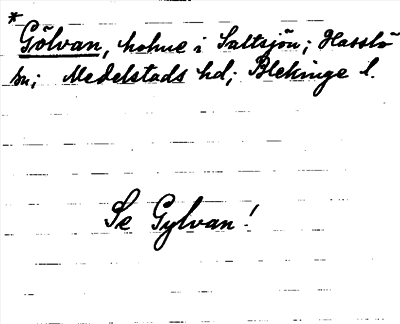 * Gölvan, holme i Saltsjön; Hasslö
sn; Medelstads hd; Blekinge l.
Se Gylvan!